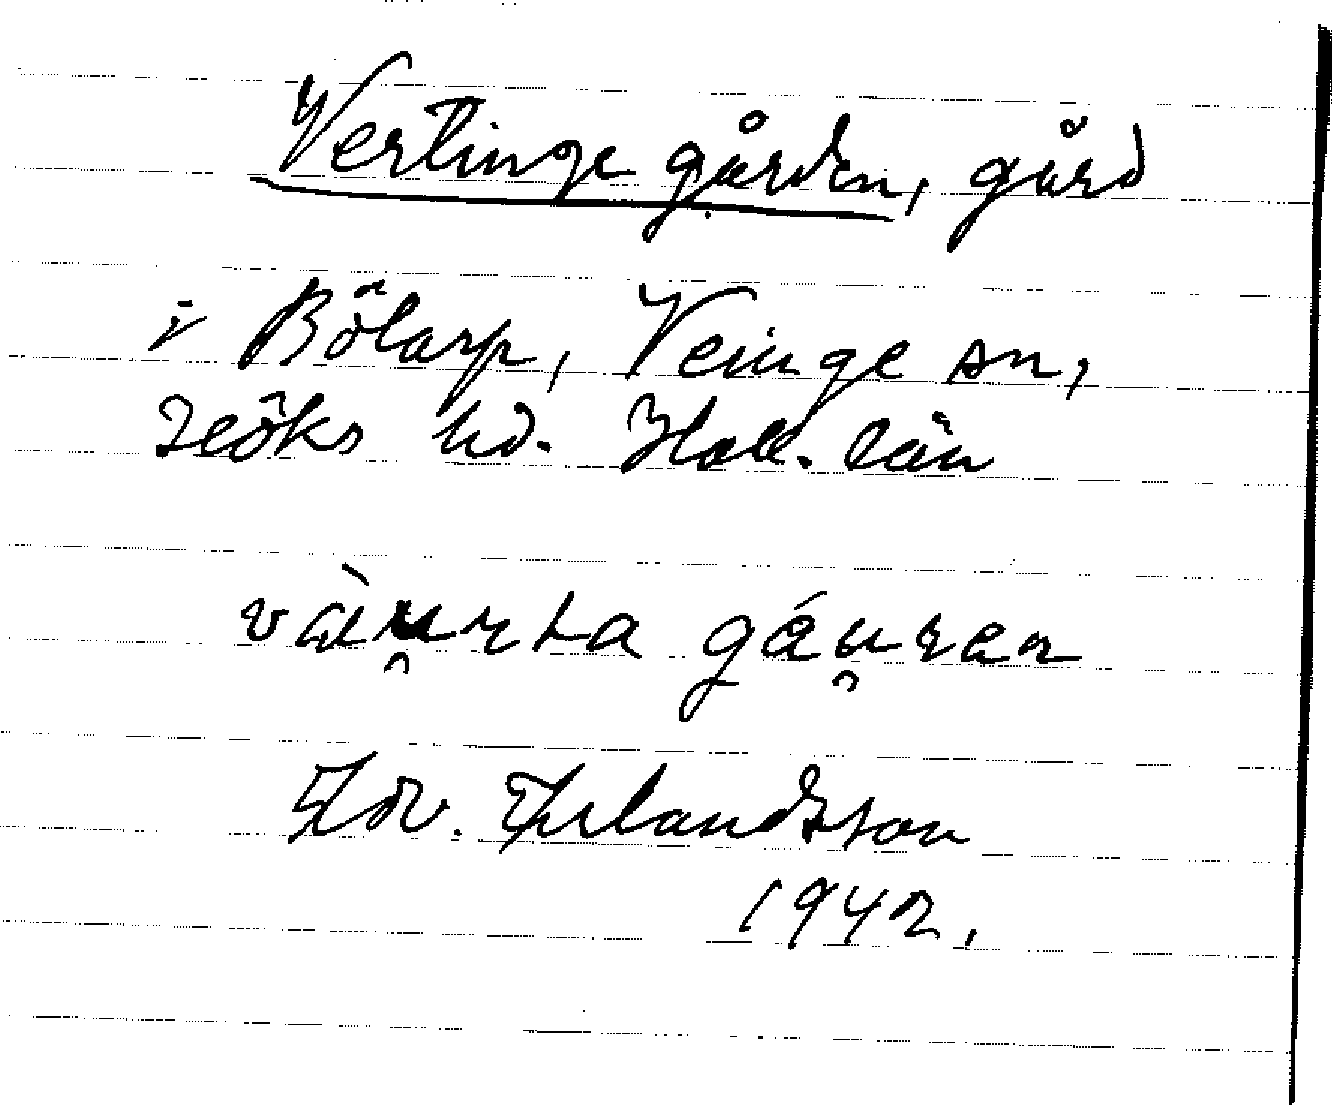 Vertinge gården, gård
i Bölarp, Veinge sn,
Höks hd. Hall. län
gáu̯ran
Edv. Erlandsson
1942.